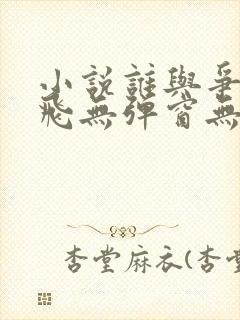 小説誰與爭
飛無彈窗無
杏堂麻衣(杏堂